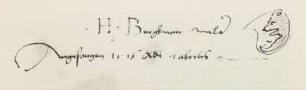 · H · Burgkmair maler
Angefangen 1516 Adi 1 abrilis